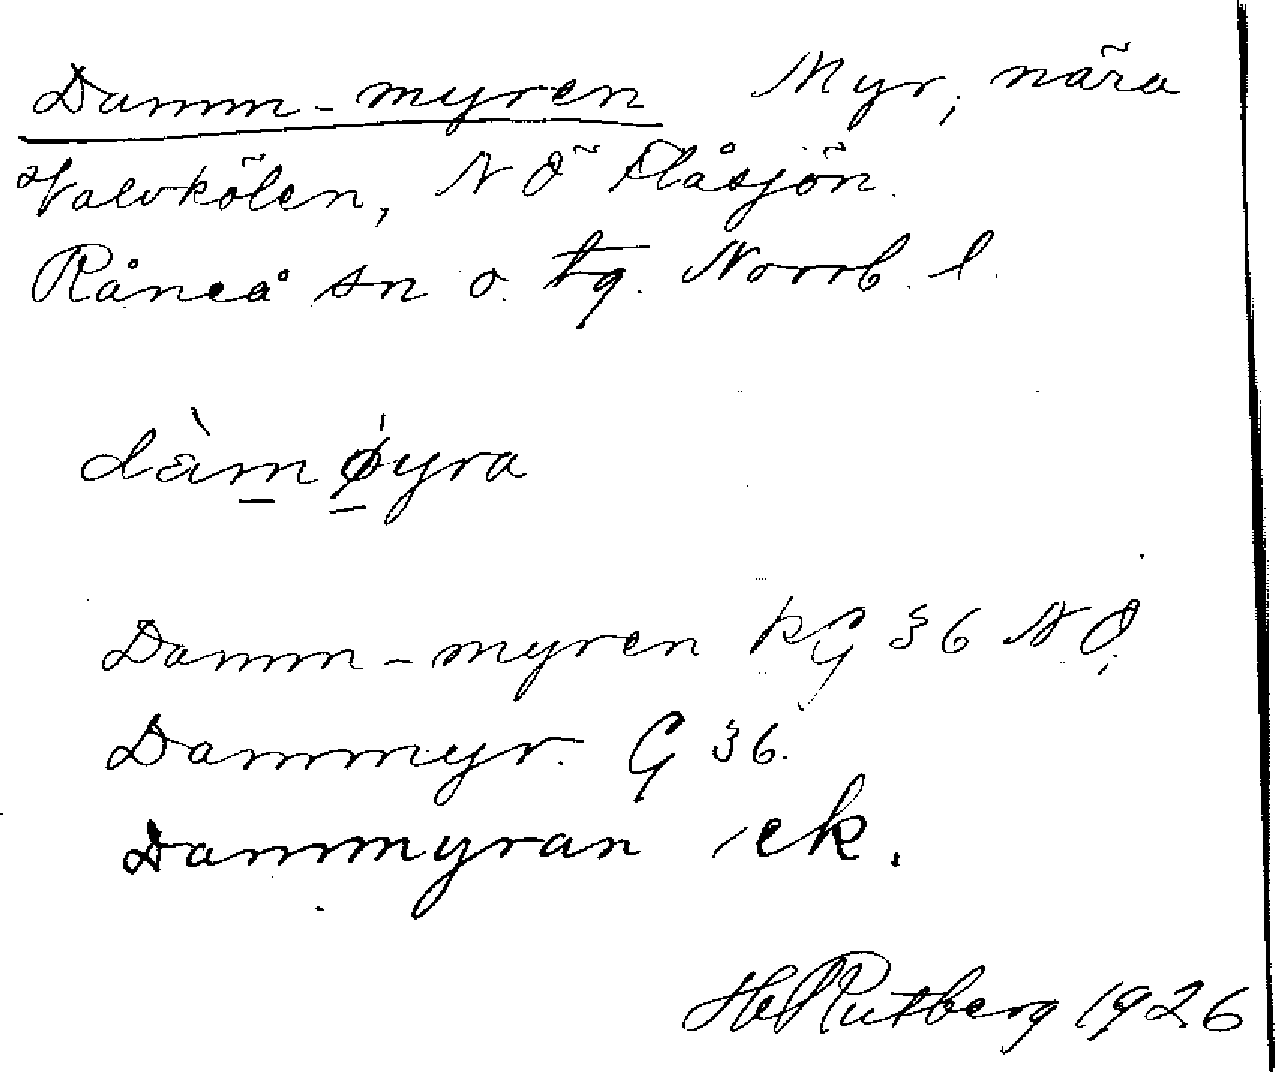 Damm-myren Myr, nära
Valvkölen, NÖ Flåsjön.
Råneå sn o. tg. Norrb. l.
Damm-myren kG 36 NO,
Dammyr. G 36.
Dammyran ek.
H Rutberg 1926